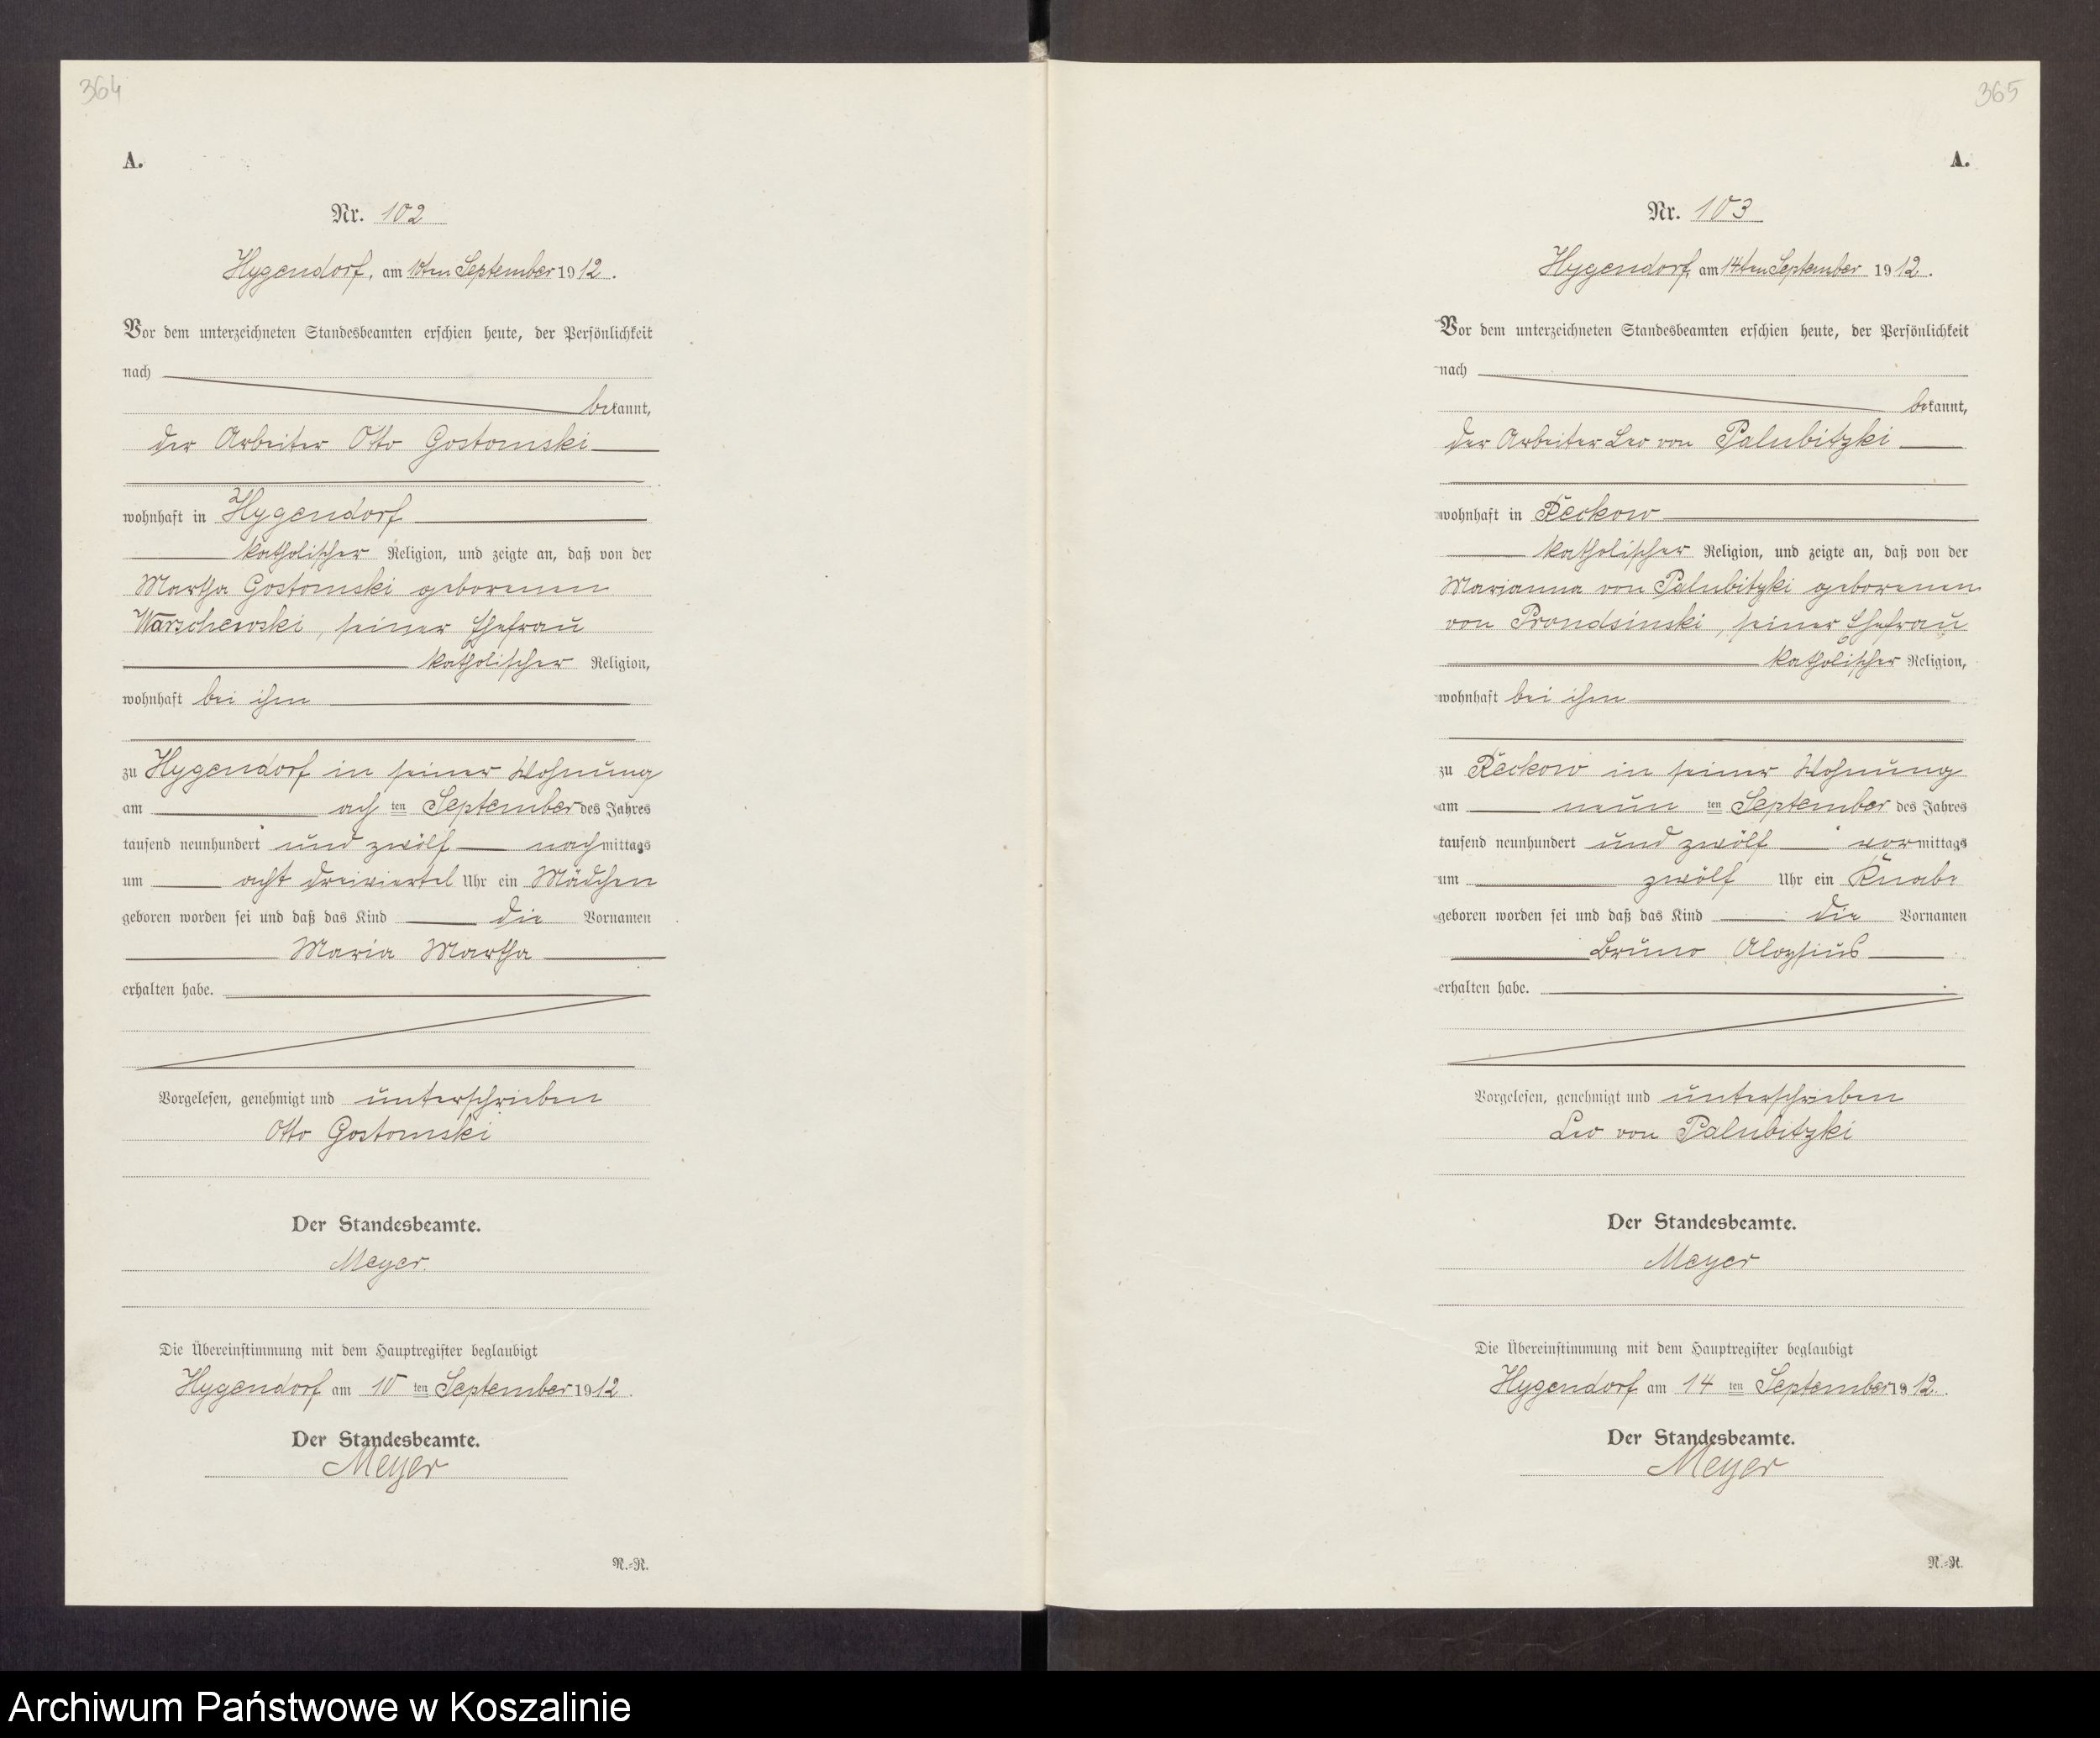 364
A.
Nr. 102
Hygendorf, am 10ten September 1912.
Vor dem unterzeichneten Standesbeamten erschien heute, der Persönlichkeit
nach
bekannt,
der Arbeiter Otto Gostomski
wohnhaft in Hygendorf
katholischer Religion, und zeigte an, daß von der
Martha Gostomski geborenen
Warschewski, seiner Ehefrau
katholischer Religion,
wohnhaft bei ihm
zu Hygendorf in seiner Wohnung
am ach ten September des Jahres
tausend neunhundert und zwölf nachmittags
um acht dreiviertel Uhr ein Mädchen
geboren worden sei und daß das Kind die Vornamen
Maria Martha
erhalten habe.
Vorgelesen, genehmigt und unterschrieben
Otto Gostomski
Der Standesbeamte.
Meyer.
Die Übereinstimmung mit dem Hauptregister beglaubigt
Hygendorf am 10 ten September 1912.
Der Standesbeamte.
Meyer
N.-R.
365
A.
Nr. 103
Hygendorf, am 14ten September 1912.
Vor dem unterzeichneten Standesbeamten erschien heute, der Persönlichkeit
nach
bekannt,
der Arbeiter Leo von Palubitzki
wohnhaft in Reckow
katholischer Religion, und zeigte an, daß von der
Marianna von Palubitzki geborenen
von Prondsinski, seiner Ehefrau
katholischer Religion,
wohnhaft bei ihm
zu Reckow in seiner Wohnung
am neun ten September des Jahres
tausend neunhundert und zwölf vormittags
um zwölf Uhr ein Knabe
geboren worden sei und daß das Kind die Vornamen
Bruno Aloysius
erhalten habe.
Vorgelesen, genehmigt und unterschrieben
Leo von Palubitzki
Der Standesbeamte.
Meyer
Die Übereinstimmung mit dem Hauptregister beglaubigt
Hygendorf am 14 ten September 1912.
Der Standesbeamte.
Meyer
N.-R.
Archiwum Państwowe w Koszalinie